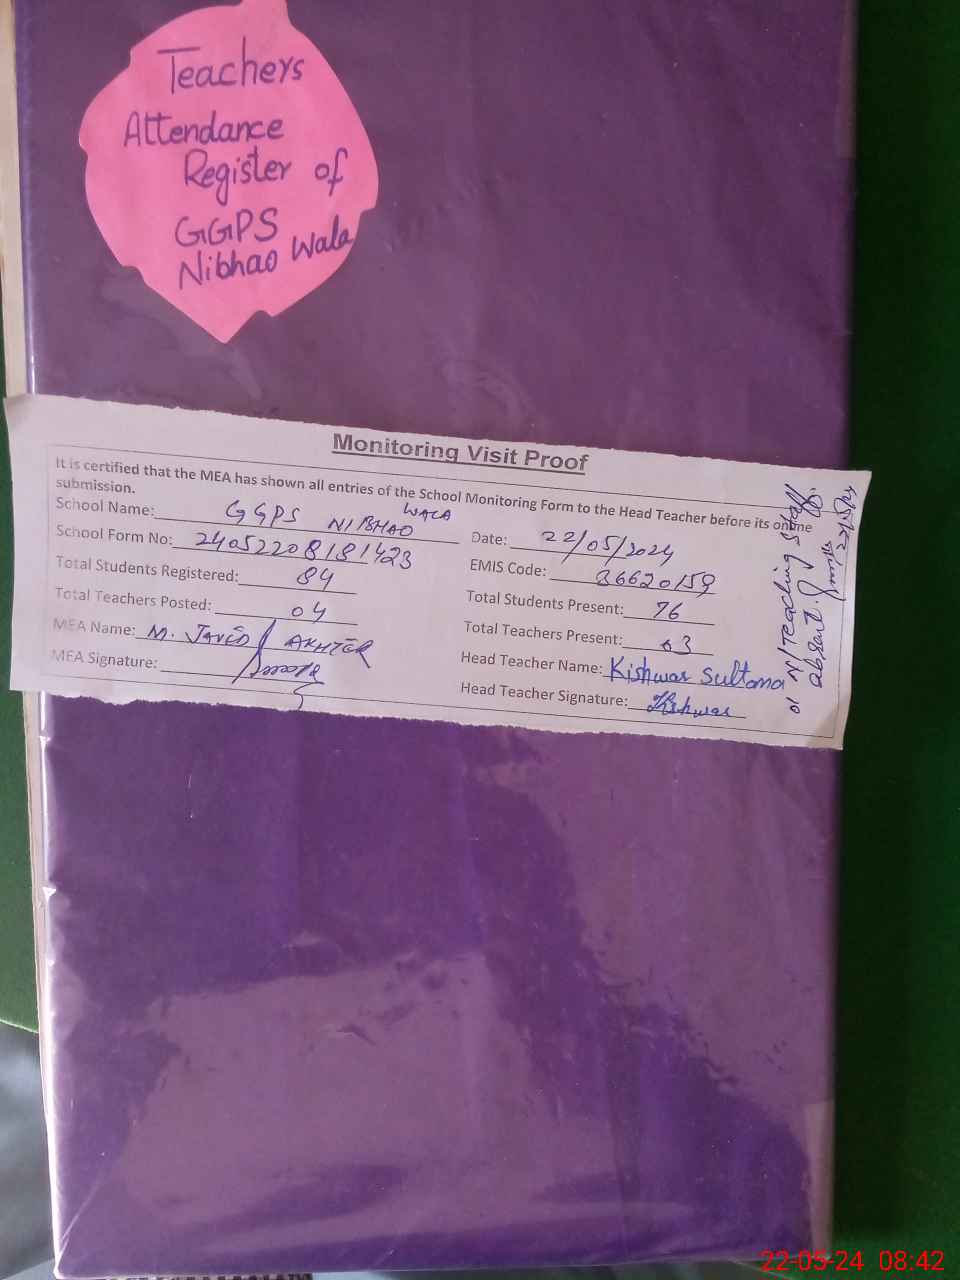 Teachers
Attendance
Register of
GGPS
Nibhao Wala
Monitoring Visit Proof
It is certified that the MEA has shown all entries of the School Monitoring Form to the Head Teacher before its online
submission.
School Name: GGPS NIBHAO WALA
Date: 22/05/2024
School Form No: 24052208181423
EMIS Code: 36620159
Total Students Registered: 84
Total Students Present: 76
Total Teachers Posted: 04
Total Teachers Present: 03
MEA Name: M. JAVED AKHTER
Head Teacher Name: Kishwar Sultana
MEA Signature:
Head Teacher Signature: Kishwar
01 N/Teaching Staff
absent.
22/5/24
22-05-24 08:42